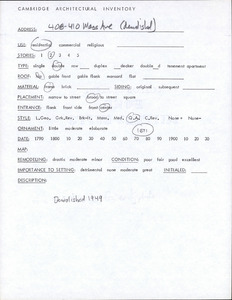 CAMBRIDGE ARCHITECTURAL INVENTORY
ADDRESS: 408-410 Mass Ave (Demolished)
USE: residential commercial religious
STORIES: 1 2 3 4 5
TYPE: single double row duplex decker double d tenement apartment
ROOF: hip gable front gable flank mansard flat
MATERIAL: frame brick SIDING: original subsequent
PLACEMENT: narrow to street broad to street square
ENTRANCE: flank front side front
STYLE: Geo, Grk.Rev, Med, Q.A. C.Rev, None
ORNAMENT: little moderate elaborate 1871
DATE: 1790 1800 10 20 30 40 50 60 70 80 90 1900 10 20 30
MAP:
REMODELING: drastic moderate minor CONDITION: poor fair good excellent
IMPORTANCE TO SETTING: detrimental none moderate great INITIALED:
DESCRIPTION:
Demolished 1949